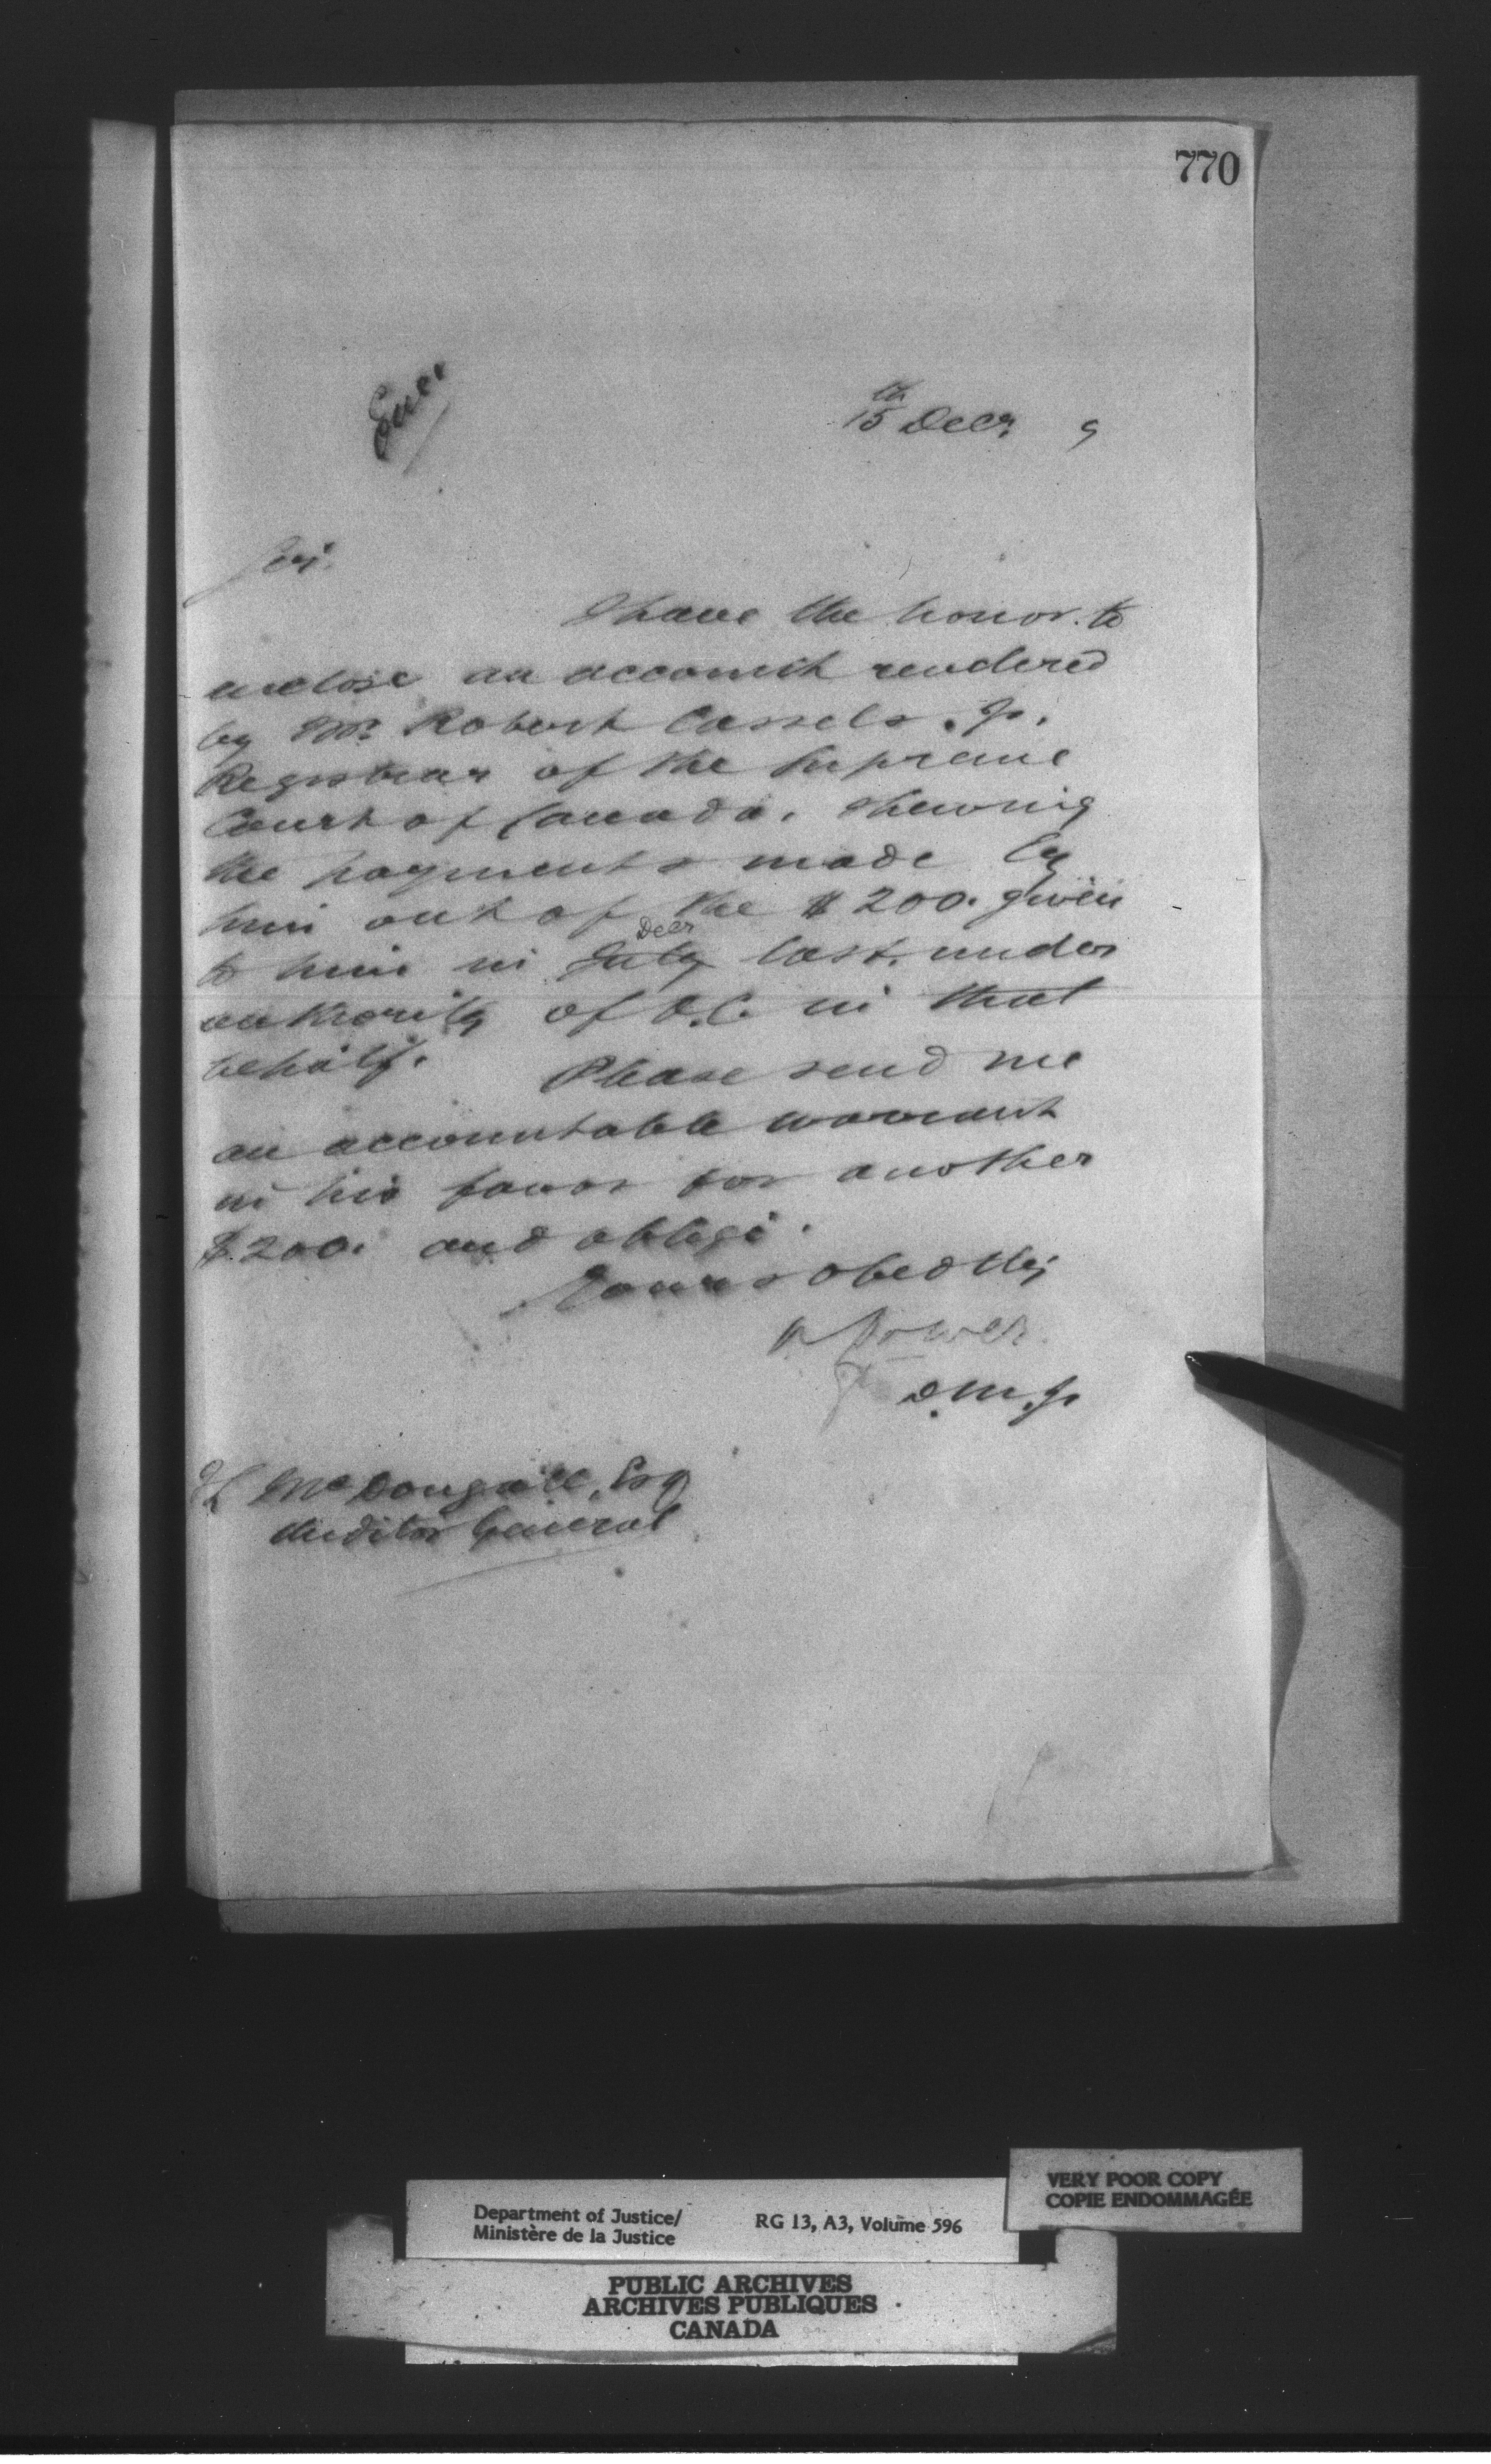 770
Encl
15th Decr. 9
Sir.
I have the honor to
enclose an account rendered
by Mr. Robert Cassels. Jr.
Registrar of the Supreme
Court of Canada, shewing
the payments made by
him out of the $200. given
Decr
to him in July last. under
authority of O.C. in that
behalf. Please send me
an accountable warrant
in his favor for another
$200. and oblige.
Yours obedtly
Power
D.M.J.
McDougall, Esq
Auditor General
Department of Justice/
Ministère de la Justice
RG 13, A3, Volume 596
VERY POOR COPY
COPIE ENDOMMAGÉE
PUBLIC ARCHIVES
ARCHIVES PUBLIQUES
CANADA